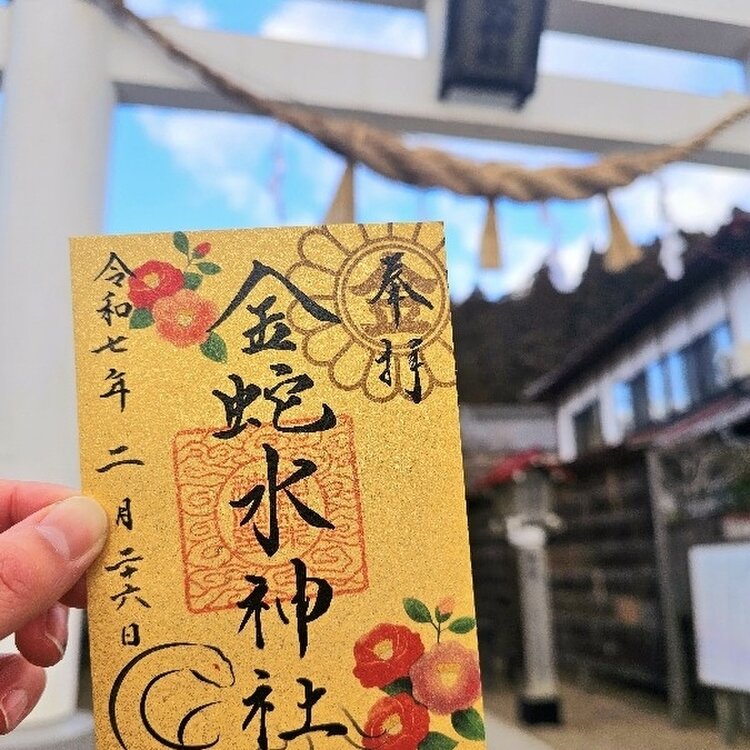 奉拝
金
金蛇水神社
令和七年 二月廿六日